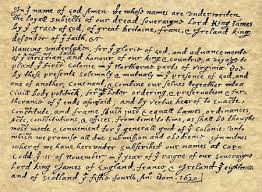 In ye name of god Amen. We whose names are underwriten,
the loyall subjects of our dread soveraigne Lord King James
by ye grace of god, of great Britaine, franc, & Ireland king,
defender of ye faith, &c
Haveing undertaken, for ye glorie of god, and advancemente
of ye christian and honour of our king & countrie, a voyage to
plant ye first colonie in ye Northerne parts of Virginia. Doe
by these presents solemnly & mutualy in ye presence of god, and
one of another, covenant, & combine our selves togeather into a
Civill body politick, for our better ordering, & preservation & fur-
therance of ye ends aforesaid; and by vertue hearof to enacte,
constitute, and frame such just & equall Lawes, ordinances,
Acts, constitutions, & offices, from time to time, as shall be thought
most meete & convenient for ye generall good of ye colonie: unto
which we promise all due submission and obedience. In witnes
wherof we have hereunder subscribed our names at Cap-
Codd ye 11 of November, in ye year of ye raigne of our soveraigne
Lord king James of England, france, & Ireland ye eighteenth
and of Scotland ye fiftie fourth. Ano Dom. 1620.